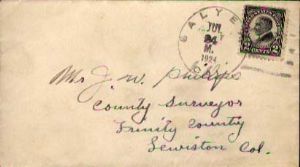 SALYE
JUL
24
M.
1924
2 CENTS 2
Mr J. W. Phillips
County Surveyor
Trinity County
Lewiston Cal.